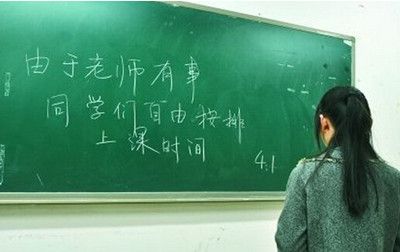 由于老师有事
同学们自由安排
上课时间
4.1